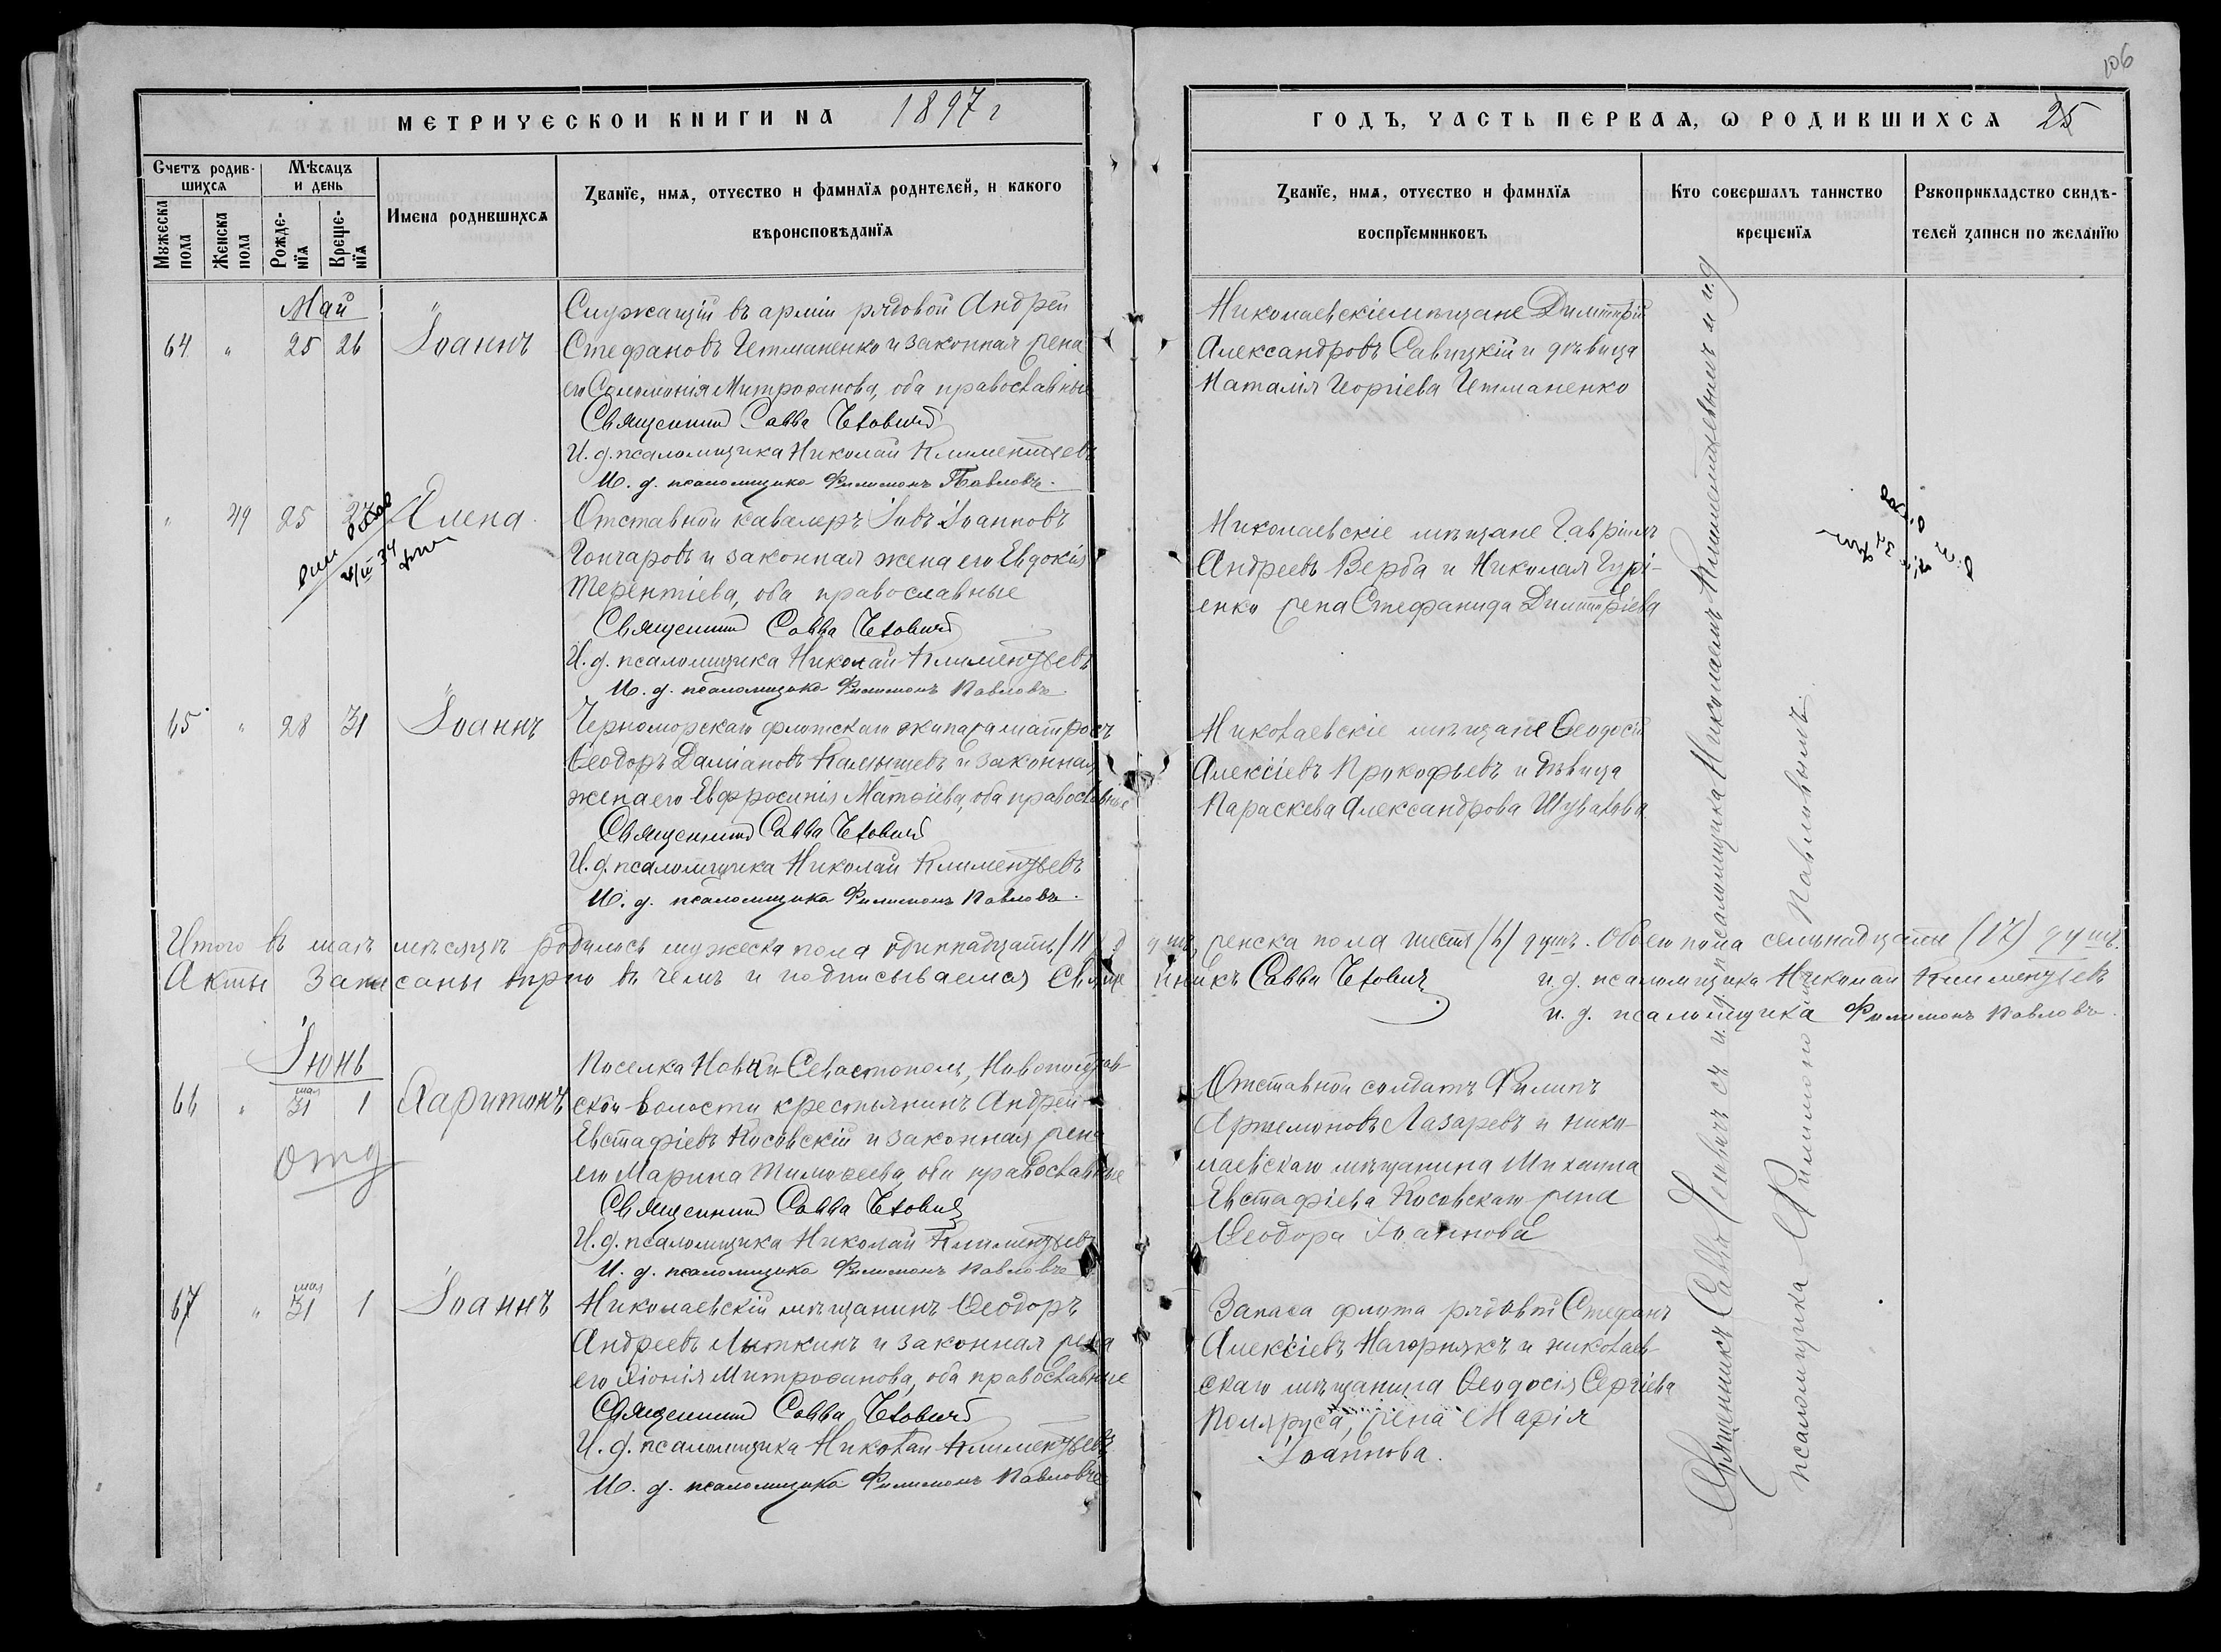 106
МЕТРИЧЕСКОЙ КНИГИ НА 1897 г
Счетъ родившихся
Мѣсяцъ и день
Мꙋжеска пола
Женска пола
Рожденїя
Крещенїя
Имена родившихся
Званїе, имя, отчество и фамилїя родителей, и какого
вѣроисповѣданїя
Май
64 " 25 26 Іоаннъ
Служащій въ арміи рядовой Андрей
Стефановъ Гетманенко и законная жена
его Соломонія Митрофанова, оба православные
Священникъ Савва
И. д. псаломщика Николай Климентьевъ
И. д. псаломщика Филимонъ Павловъ.
" 49 25 27 Елена
Отставной кавалеръ Іовъ Іоанновъ
Гончаровъ и законная жена его Евдокія
Терентіева, оба православные
Священникъ Савва
И. д. псаломщика Николай Климентьевъ
И. д. псаломщика Филимонъ Павловъ.
65 " 28 31 Іоаннъ
Черноморскаго флотскаго экипажа матросъ
Ѳеодоръ Даміановъ и законная
жена его Евфросинія Матѳіева, оба православные
Священникъ Савва
И. д. псаломщика Николай Климентьевъ
И. д. псаломщика Филимонъ Павловъ.
Итого въ маѣ мѣсяцѣ родилось мужеска пола одиннадцать (11) душъ, женска пола шесть (6) душъ. Обоего пола семнадцать (17) душъ.
Акты записаны вѣрно въ чемъ и подписываемся Священникъ Савва
и. д. псаломщика Николай Климентьевъ
и. д. псаломщика Филимонъ Павловъ.
Іюнь
66 " мая 31 1 Харитонъ
отд
Поселка Новый-Севастополь, Новополтав-
ской волости крестьянинъ Андрей
Евстафіевъ Косовскій и законная жена
его Марина Тимоѳеева, оба православные
Священникъ Савва
И. д. псаломщика Николай Климентьевъ
И. д. псаломщика Филимонъ Павловъ
67 " мая 31 1 Іоаннъ
Николаевскій мѣщанинъ Ѳеодоръ
Андреевъ Лыткинъ и законная жена
его Хіонія Митрофанова, оба православные
Священникъ Савва
И. д. псаломщика Николай Климентьевъ
И. д. псаломщика Филимонъ Павловъ
ГОДЪ, ЧАСТЬ ПЕРВАЯ, Ѡ РОДИВШИХСЯ 25
Званїе, имя, отчество и фамилїя
воспрїемниковъ
Кто совершалъ таинство
крещенїя
Рꙋкоприкладство свидѣ-
телей записи по желанїю
Николаевскіе мѣщане Димитрій
Александровъ Савицкій и дѣвица
Наталія Георгіева Гетманенко
Николаевскіе мѣщане Гавріилъ
Андреевъ Верба и Николая Гурі-
енко жена Стефанида Димитріева
Николаевскіе мѣщане Ѳеодосій
Алексіевъ Прокофьевъ и дѣвица
Параскева Александрова Шувалова
Отставной солдатъ Филипъ
Артемоновъ Лазаревъ и нико-
лаевскаго мѣщанина Михаила
Евстафіева Косовскаго жена
Ѳеодора Іоаннова
Запаса флота рядовой Стефанъ
Алексіевъ Нагорнякъ и николаев-
скаго мѣщанина Ѳеодосія Сергіева
Поляруса, жена Марія
Іоаннова.
Священникъ Савва съ и. д. псаломщика Николаемъ Климентьевымъ и и. д
псаломщика Филимономъ Павловымъ.